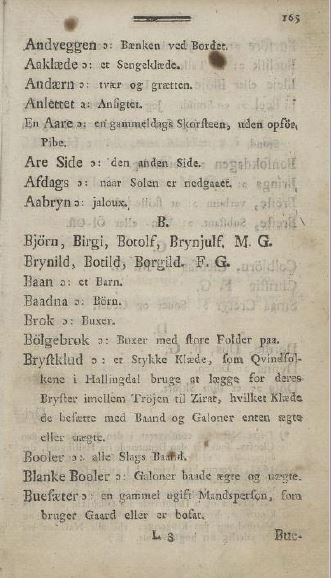 165
Andveggen ɔ: Bænken ved Bordet.
Aaklæde ɔ: et Sengeklæde.
Andærn ɔ: tvær og grætten.
Anlettet a: Ansigtet.
En Aare ɔ: en gammeldags Skorsteen, uden opføꝛ,
Pibe.
Are Side ɔ: den anden Side.
Afdags ɔ: naar Solen er nedgaaet.
Aabryn ɔ: jaloux.
B.
Björn, Birgi, Botolf, Brynjulf, M. G.
Brynild, Botild, Borgild. F. G.
Baan ɔ: et Barn.
Baadna ɔ: Börn.
Brok ɔ: Buxer.
Bölgebrok ɔ: Buxer med ſtore Folder paa.
Bryſtklud ɔ: et Stykke Klæde, ſom Qvindfol-
kene i Hallingdal bruge at lægge for deres
Bryſter imellem Tröjen til Zirat, hvilket Klæde
de beſætte med Baand og Galoner enten ægte
eller uægte.
Booler ɔ: alle Slags Baand.
Blanke Booler ɔ: Galoner baade ægte og uægte.
Bueſæter ɔ: en gammel ugift Mandsperſon, ſom
bruger Gaard eller er boſat.
L 3
Bue-